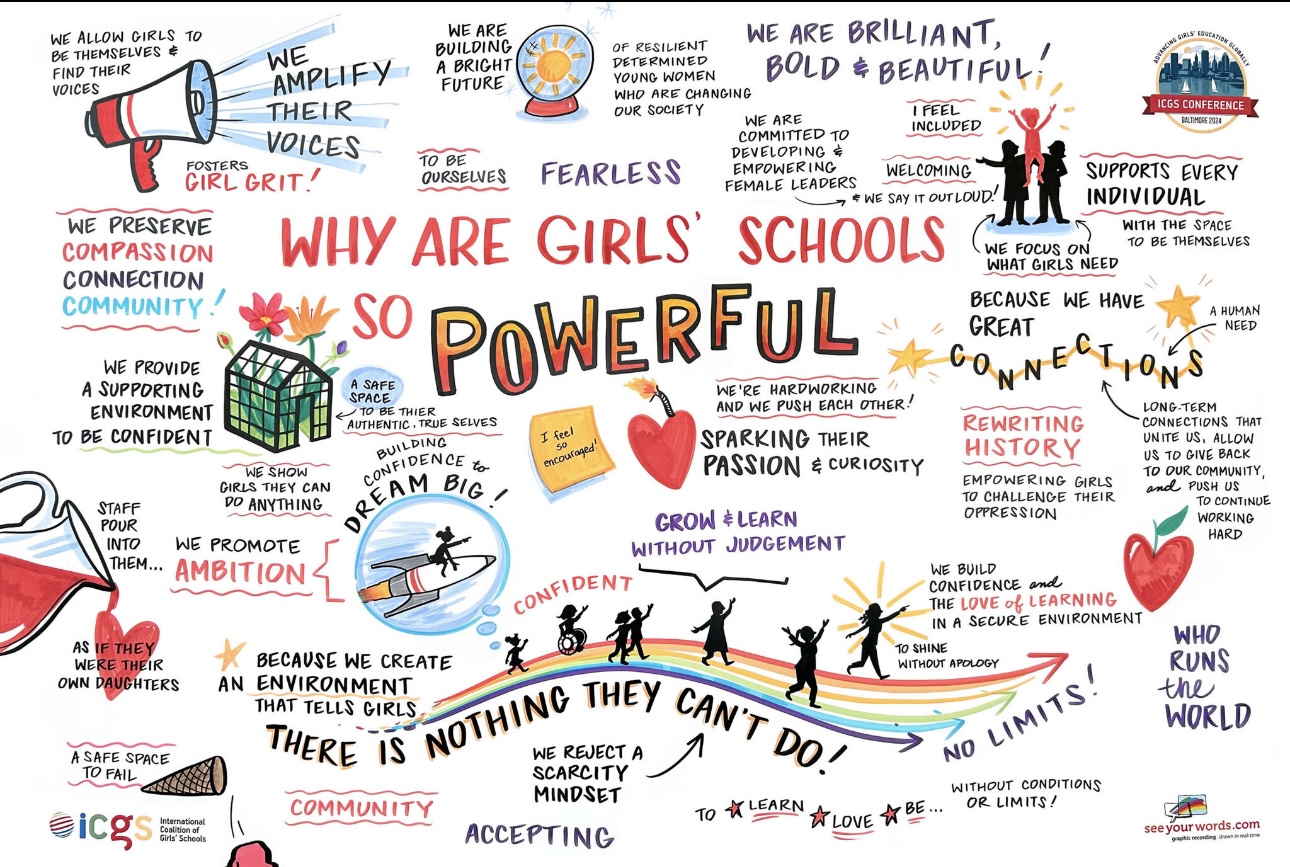 WE ALLOW GIRLS TO
BE THEMSELVES &
FIND THEIR
VOICES
WE
AMPLIFY
THEIR
VOICES
FOSTERS
GIRL GRIT!
WE ARE
BUILDING
A BRIGHT
FUTURE
OF RESILIENT
DETERMINED
YOUNG WOMEN
WHO ARE CHANGING
OUR SOCIETY
WE ARE BRILLIANT,
BOLD & BEAUTIFUL!
ADVANCING GIRLS' EDUCATION GLOBALLY
ICGS CONFERENCE
BALTIMORE 2024
TO BE
OURSELVES
FEARLESS
WE ARE
COMMITTED TO
DEVELOPING &
EMPOWERING
FEMALE LEADERS
& WE SAY IT OUT LOUD!
I FEEL
INCLUDED
WELCOMING
SUPPORTS EVERY
INDIVIDUAL
WITH THE SPACE
TO BE THEMSELVES
WE FOCUS ON
WHAT GIRLS NEED
WE PRESERVE
COMPASSION
CONNECTION
COMMUNITY!
WHY ARE GIRLS' SCHOOLS
SO POWERFUL
BECAUSE WE HAVE
GREAT
CONNECTIONS
A HUMAN
NEED
WE PROVIDE
A SUPPORTING
ENVIRONMENT
TO BE CONFIDENT
A SAFE
SPACE
TO BE THIER
AUTHENTIC, TRUE SELVES
I feel
so
encouraged!
WE'RE HARDWORKING
AND WE PUSH EACH OTHER!
SPARKING THEIR
PASSION & CURIOSITY
REWRITING
HISTORY
EMPOWERING GIRLS
TO CHALLENGE THEIR
OPPRESSION
LONG-TERM
CONNECTIONS THAT
UNITE US, ALLOW
US TO GIVE BACK
TO OUR COMMUNITY,
and PUSH US
TO CONTINUE
WORKING
HARD
WE SHOW
GIRLS THEY CAN
DO ANYTHING
BUILDING
CONFIDENCE to
DREAM BIG!
STAFF
POUR
INTO
THEM...
WE PROMOTE
AMBITION
GROW & LEARN
WITHOUT JUDGEMENT
CONFIDENT
WE BUILD
CONFIDENCE and
THE LOVE of LEARNING
IN A SECURE ENVIRONMENT
TO SHINE
WITHOUT APOLOGY
AS IF THEY
WERE THEIR
OWN DAUGHTERS
BECAUSE WE CREATE
AN ENVIRONMENT
THAT TELLS GIRLS
THERE IS NOTHING THEY CAN'T DO!
NO LIMITS!
WHO
RUNS
the
WORLD
A SAFE SPACE
TO FAIL
WE REJECT A
SCARCITY
MINDSET
COMMUNITY
ACCEPTING
TO LEARN LOVE BE...
WITHOUT CONDITIONS
OR LIMITS!
icgs
International
Coalition of
Girls' Schools
seeyourwords.com
graphic recording drawn in real-time